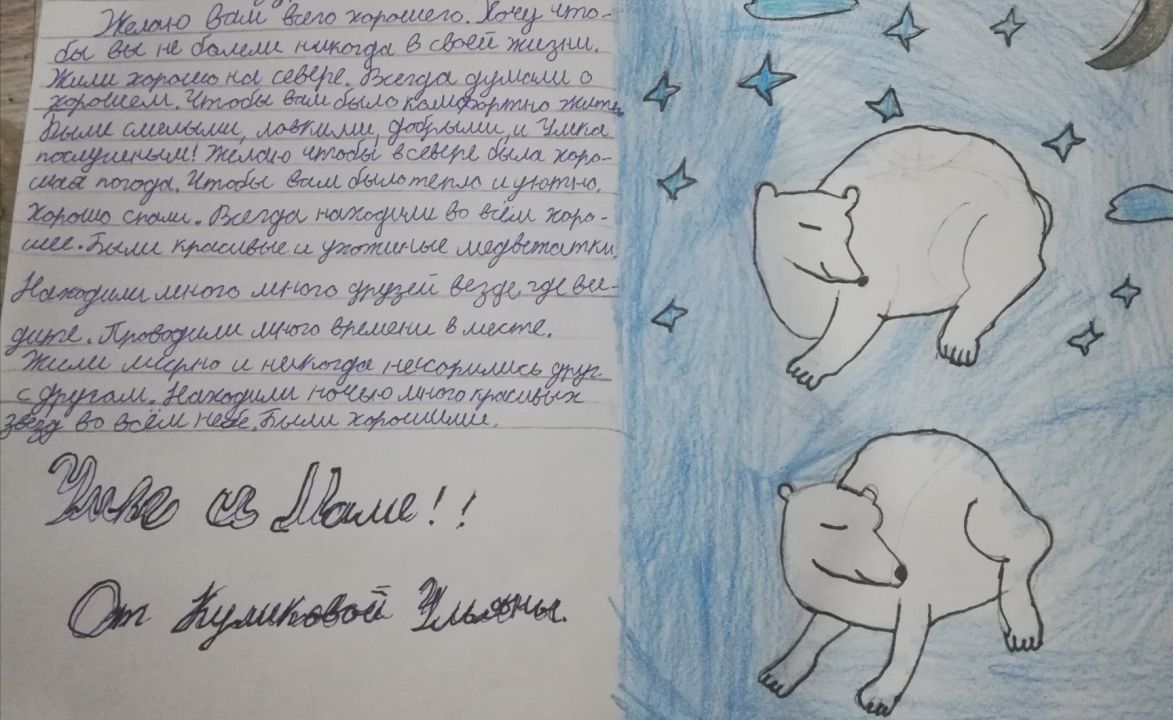 Желаю вам всего хорошего. Хочу что-
бы вы не болели никогда в своей жизни.
Жили хорошо на севере. Всегда думали о
хорошем. Чтобы вам было комфортно жить.
Были смелыми, ловкими, добрыми, и Умка
послушеным! Желаю чтобы в севере была хоро-
шая погода. Чтобы вам было тепло и уютно.
Хорошо спали. Всегда находили во всём хоро-
шее. Были красивые и ухоженые медвежатки.
Находили много много друзей везде, где ви-
дите. Проводили много времени в месте.
Жили мирно и никогда несорились друг
с другом. Находили ночью много красивых
звёзд во всём небе. Были хорошими.
Умке и Маме!!
От Куликовой Ульяны.